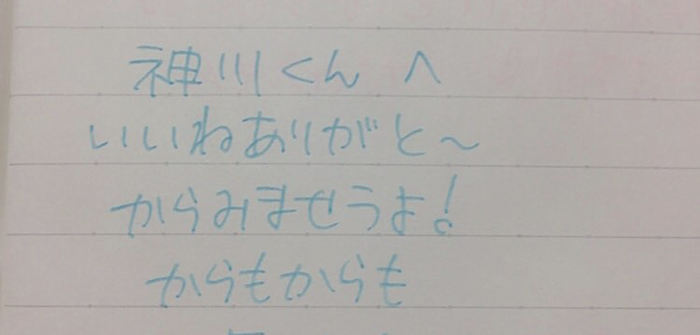 神川くんへ
いいねありがと〜
からみませうよ!
からもからも